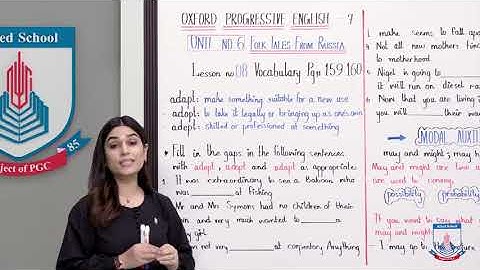 ed School
85
ject of PGC
OXFORD PROGRESSIVE ENGLISH - 7
UNIT NO. 6 FOLK TALES FROM RUSSIA
Lesson no. 08 Vocabulary Pgn 159,160
adapt: make something suitable for a new use
adopt: to take it legally or bringing up as one's own
adept: skilled or professional at something
Fill in the gaps in the following sentences
with adapt, adopt and adept as appropriate
1 It was extraordinary to see a Baboon who
was at fishing
Mr and Mrs Symons had no children of their
and very much wanted to a
girl
not very at carpentary. Anything
I make seems to fall apa
Not all new mothers find
to motherhood.
Nigel is going to
it will run on diesel ra
Now that you are living i
you will their wa
MODAL AUXIL
may and might; may h
May and might are two
are used to convey
possibility probability
If you want to say what
may and might
I may go to the
Allied School